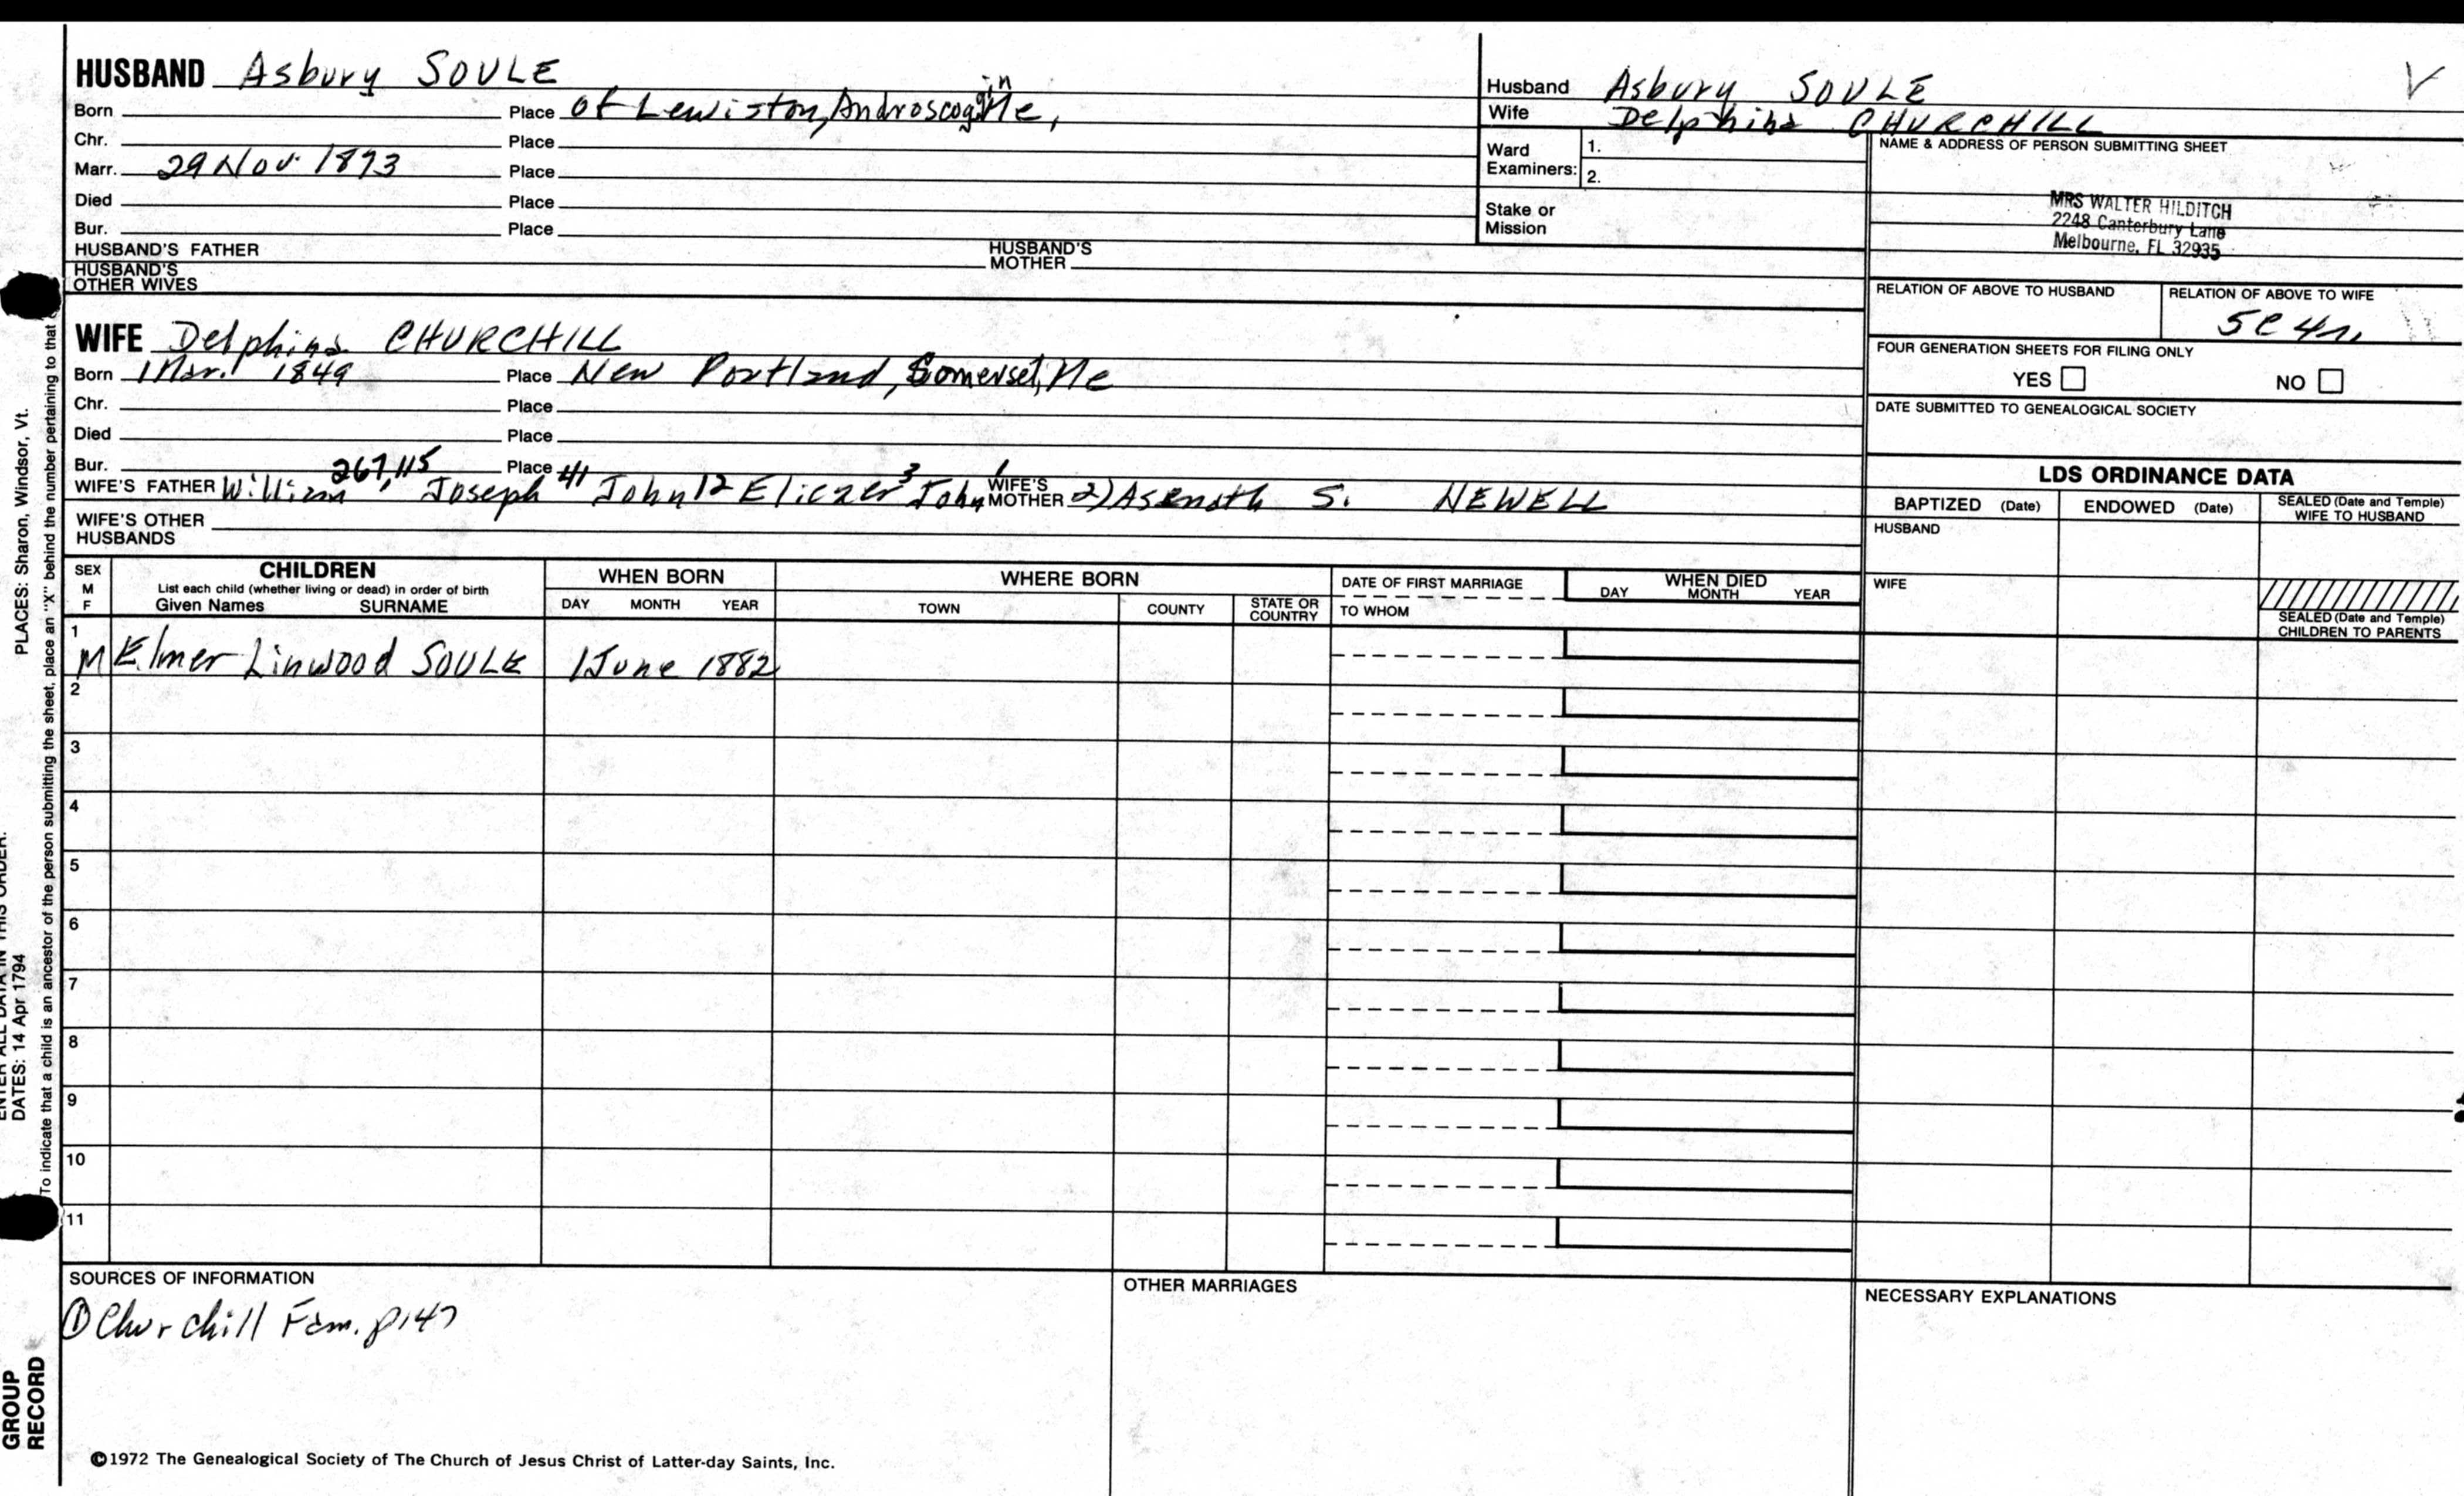 HUSBAND Asbury SOULE
Born Place of Lewiston, Androscoggin Me,
Chr. Place
Marr. 29 Nov. 1873 Place
Died Place
Bur. Place
HUSBAND'S FATHER HUSBAND'S MOTHER
HUSBAND'S OTHER WIVES
Husband Asbury SOULE V
Wife Delphina CHURCHILL
Ward Examiners: 1.
2.
Stake or Mission
NAME & ADDRESS OF PERSON SUBMITTING SHEET
MRS WALTER HILDITCH
2248 Canterbury Lane
Melbourne, FL 32935
RELATION OF ABOVE TO HUSBAND RELATION OF ABOVE TO WIFE
5C 4r.
FOUR GENERATION SHEETS FOR FILING ONLY
YES NO
DATE SUBMITTED TO GENEALOGICAL SOCIETY
WIFE Delphina CHURCHILL
Born 1 Mar. 1849 Place New Portland, Somerset, Me
Chr. Place
Died Place
Bur. Place
WIFE'S FATHER William 267, 115 Joseph 41 John 12 Eliezer 3 John 1 WIFE'S MOTHER 2) Asenath S. NEWELL
WIFE'S OTHER HUSBANDS
LDS ORDINANCE DATA
BAPTIZED (Date) ENDOWED (Date) SEALED (Date and Temple) WIFE TO HUSBAND
HUSBAND
WIFE
SEALED (Date and Temple) CHILDREN TO PARENTS
SEX M F
CHILDREN
List each child (whether living or dead) in order of birth
Given Names SURNAME
WHEN BORN
DAY MONTH YEAR
WHERE BORN
TOWN COUNTY STATE OR COUNTRY
DATE OF FIRST MARRIAGE
TO WHOM
WHEN DIED
DAY MONTH YEAR
1
M Elmer Linwood SOULE 1 June 1882
2
3
4
5
6
7
8
9
10
11
SOURCES OF INFORMATION
① Churchill Fam. p147
OTHER MARRIAGES
NECESSARY EXPLANATIONS
©1972 The Genealogical Society of The Church of Jesus Christ of Latter-day Saints, Inc.
PLACES: Sharon, Windsor, Vt.
To indicate that a child is an ancestor of the person submitting the sheet, place an "X" behind the number pertaining to that
ENTER ALL DATA IN THIS ORDER:
DATES: 14 Apr 1794
GROUP
RECORD